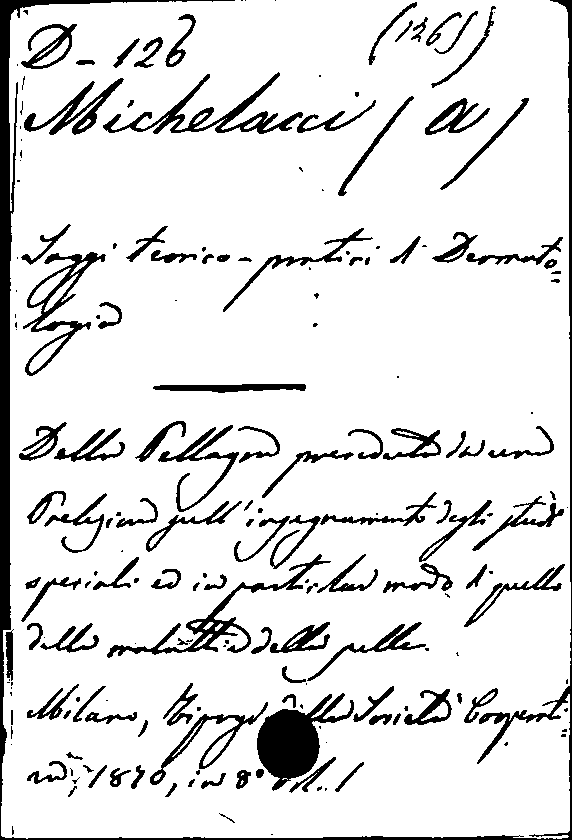 D - 126 (1265)
Michelacci (A)
Saggi teorico-pratici di Dermato=
logia
Della Pellagra preceduta da una
Prelezione sull'insegnamento degli studi
speciali ed in particolar modo di quello
delle malattie della pelle.
Milano, Tipogr. della Società Cooperati=
va, 1870, in 8° vol. 1